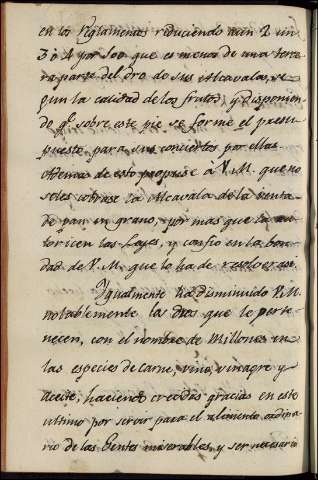 en los Reglamentos reduciendo aun 2 un
3 o 4 por 100 que es menos de una terce
ra parte del dro de sus Alcavalas, se
gun la calidad de los frutos, y disponien
do q.e sobre este pie se forme el presu
puesto para sus conciertos por ellas
Ademas de esto propuse à V. M. que no
seles cobrase la Alcavala de la venta
de pan en grano, por mas que la au
toricen las Leyes, y confio en la bon
dad de V. M. que lo ha de resolver asi
Igualmente ha disminuido V. M.
notablemente los dros que le perte
necen, con el nombre de Millones en
las especies de carne, vino, vinagre y
aceite, haciendo crecidas gracias en este
ultimo por servir para el alimento ordina
rio de las Gentes miserables, y ser necesario